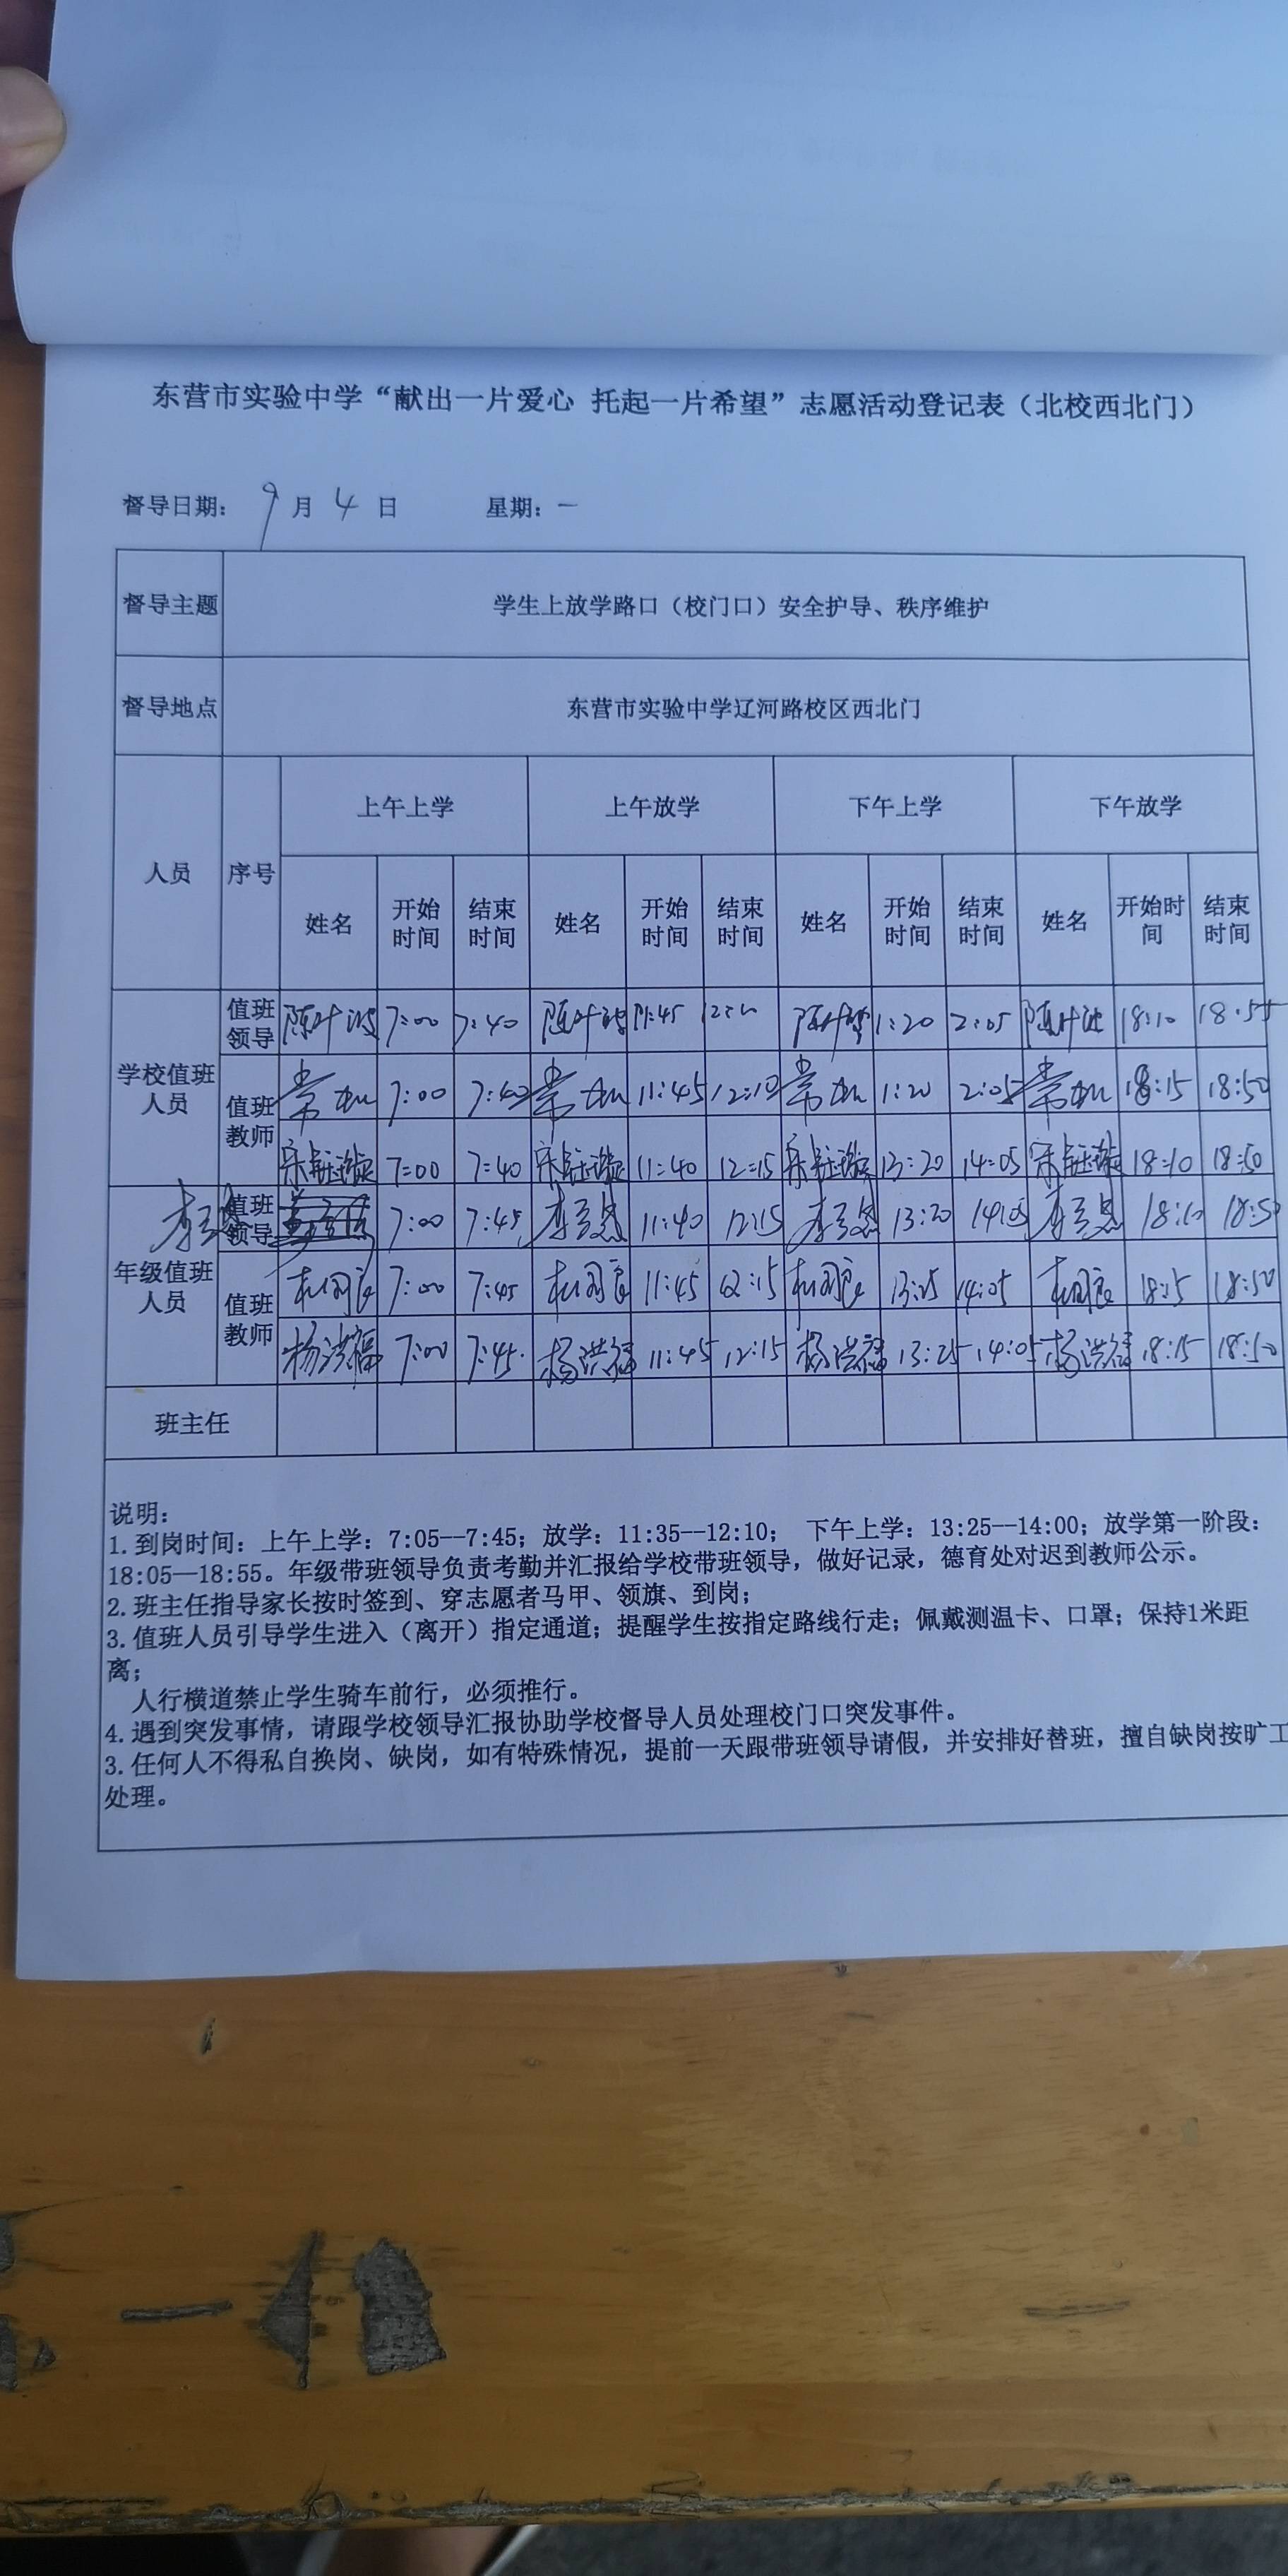 东营市实验中学“献出一片爱心 托起一片希望”志愿活动登记表（北校西北门）
督导日期： 9 月 4 日 星期：一
督导主题 学生上放学路口（校门口）安全护导、秩序维护
督导地点 东营市实验中学辽河路校区西北门
人员 序号 上午上学 上午放学 下午上学 下午放学
姓名 开始时间 结束时间 姓名 开始时间 结束时间 姓名 开始时间 结束时间 姓名 开始时间 结束时间
学校值班人员 值班领导 陈叶波 7:00 7:40 陈叶波 11:45 陈叶波 1:20 2:05 陈叶波 18:10 18:55
值班教师 常 7:00 7:40 常 11:45 12:10 常 1:20 2:05 常 18:15 18:50
宋 7:00 7:40 宋 11:40 12:15 宋 13:20 14:05 宋 18:10 18:50
年级值班人员 值班领导 李 7:00 7:45 李 11:40 12:15 李 13:20 14:05 李 18:10 18:50
值班教师 7:00 7:45 11:45 12:15 13:25 14:05 18:15 18:50
杨洪福 7:00 7:45 杨洪福 11:45 12:15 杨洪福 13:25 14:05 杨洪福 18:15 18:50
班主任
说明：
1.到岗时间：上午上学：7:05--7:45；放学：11:35--12:10； 下午上学：13:25--14:00；放学第一阶段：
18:05—18:55。年级带班领导负责考勤并汇报给学校带班领导，做好记录，德育处对迟到教师公示。
2.班主任指导家长按时签到、穿志愿者马甲、领旗、到岗；
3.值班人员引导学生进入（离开）指定通道；提醒学生按指定路线行走；佩戴测温卡、口罩；保持1米距
离；
人行横道禁止学生骑车前行，必须推行。
4.遇到突发事情，请跟学校领导汇报协助学校督导人员处理校门口突发事件。
3.任何人不得私自换岗、缺岗，如有特殊情况，提前一天跟带班领导请假，并安排好替班，擅自缺岗按旷工
处理。